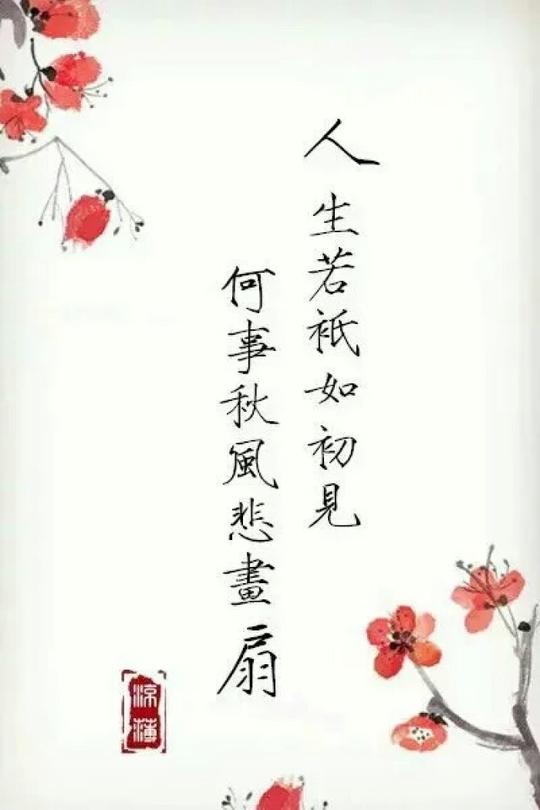 人生若袛如初見
何事秋風悲畫扇
涼薄